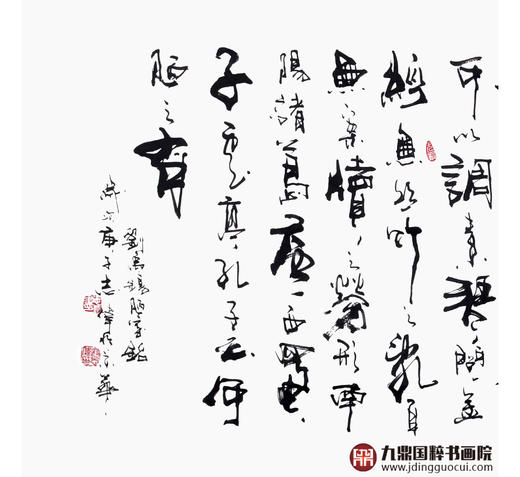 可以調素琴閱金
經無絲竹之亂耳
無案牘之勞形南
陽諸葛廬西蜀
子云亭孔子云何
陋之有
劉禹錫陋室銘
歲次庚子志
九鼎国粹书画院
www.jdingguocui.com